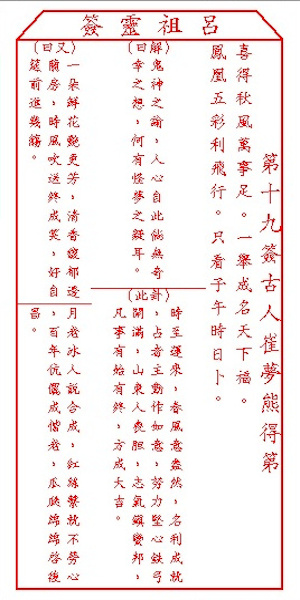 呂祖靈簽
第十九簽古人崔夢熊得第
喜得秋風萬事足。一舉成名天下福。
鳳凰五彩利飛行。只看子午時日卜。
(解曰)
鬼神之論,人心自此恍無奇
幸之想,何有怪夢之疑耳。
(此卦)
時至運來,春風意盎然,名利成就
,占者主動作如意,努力堅心鉄弓
開滿,山東人喪胆,志氣鎮蠻邦,
凡事有始有終,方成大吉。
(又曰)
一朵鮮花艷更芳,清香馥郁透
蘭房,時風吹送終成笑,好自
筵前進幾觴。
月老冰人說合成,紅絲繫就不勞心
,百年伉儷成偕老,瓜瓞綿綿啓後
昌。